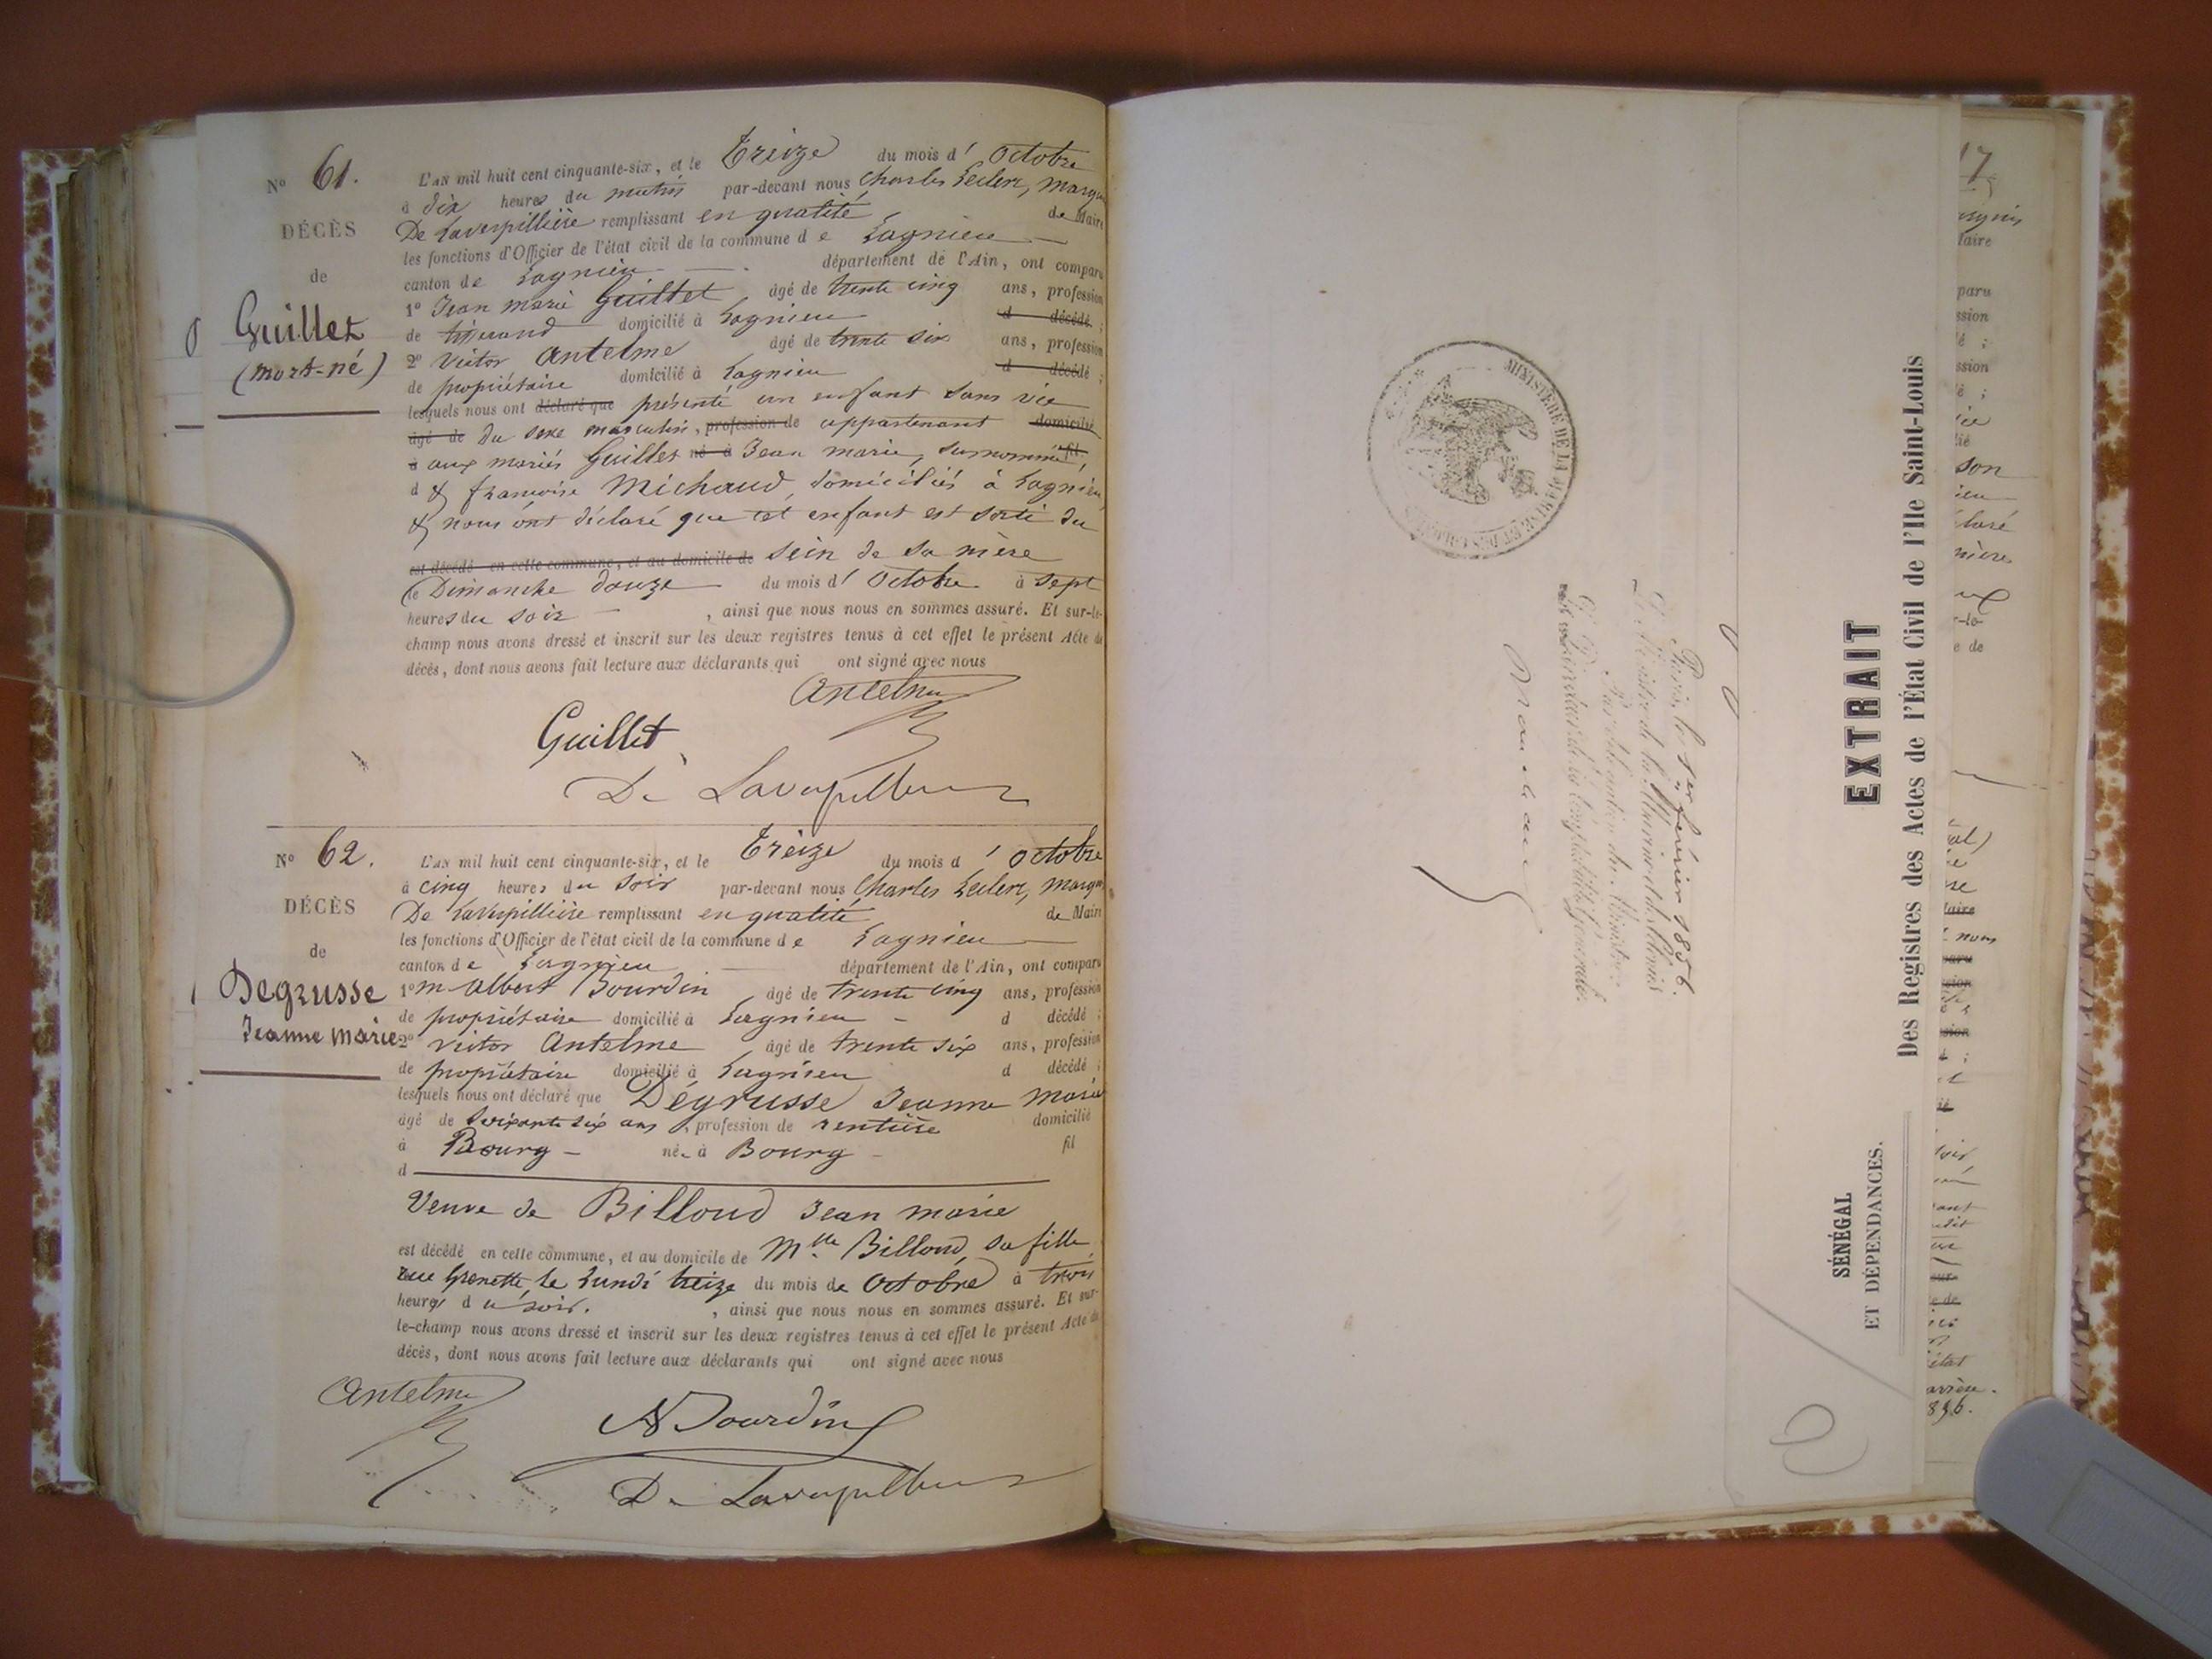 N° 61.
DÉCÈS
de
Guillet
(mort-né)
L'an mil huit cent cinquante-six, et le Treize du mois d' Octobre
à dix heures du matin par-devant nous Charles Leclerc, marquis
De Laverpillière remplissant en qualité de Maire
les fonctions d'Officier de l'état civil de la commune de Lagnieu
canton de Lagnieu département de l'Ain, ont comparu
1° Jean Marie Guillet âgé de trente cinq ans, profession
de tisserand domicilié à Lagnieu d décédé ;
2° Victor Antelme âgé de trente six ans, profession
de propriétaire domicilié à Lagnieu d décédé ;
lesquels nous ont déclaré que présenté un enfant sans vie
âgé de Du sexe masculin, profession de appartenant domicilié
à aux mariés Guillet né à Jean marie, surnommé, fil
d & françoise Michaud, domiciliés à Lagnieu
& nous ont déclaré que cet enfant est sorti du
est décédé en cette commune, et au domicile de sein de sa mère
le Dimanche douze du mois d' Octobre à sept
heures du soir , ainsi que nous nous en sommes assuré. Et sur-le-
champ nous avons dressé et inscrit sur les deux registres tenus à cet effet le présent Acte de
décès, dont nous avons fait lecture aux déclarants qui ont signé avec nous
Antelme
Guillet
De Laverpilliere
N° 62.
DÉCÈS
de
Degrusse
Jeanne Marie
L'an mil huit cent cinquante-six, et le Treize du mois d' Octobre
à cinq heures du soir par-devant nous Charles Leclerc, Marquis
De Laverpillière remplissant en qualité de Maire
les fonctions d'Officier de l'état civil de la commune de Lagnieu
canton de Lagnieu département de l'Ain, ont comparu
1° m Albert Bourdin âgé de trente cinq ans, profession
de propriétaire domicilié à Lagnieu d décédé ;
2° Victor Antelme âgé de trente six ans, profession
de propriétaire domicilié à Lagnieu d décédé ;
lesquels nous ont déclaré que Dégrusse Jeanne Marie
âgé de soixante six ans, profession de rentière domicilié
à Bourg né à Bourg fil
d
Veuve de Billoud Jean marie
est décédé en cette commune, et au domicile de Mlle Billoud, sa fille
rue Grenette, le Lundi treize du mois de Octobre à trois
heures du soir. , ainsi que nous nous en sommes assuré. Et sur-
le-champ nous avons dressé et inscrit sur les deux registres tenus à cet effet le présent Acte de
décès, dont nous avons fait lecture aux déclarants qui ont signé avec nous
Antelme
A Bourdin
De Laverpilliere
MINISTÈRE DE LA MARINE ET DES COLONIES
Paris, le 1er février 1856.
Le Ministre de la Marine et des Colonies
Par autorisation du Ministre:
Le Directeur de la Comptabilité Générale.
EXTRAIT
Des Registres des Actes de l'État Civil de l'Ile Saint-Louis
SÉNÉGAL
ET DÉPENDANCES.
17